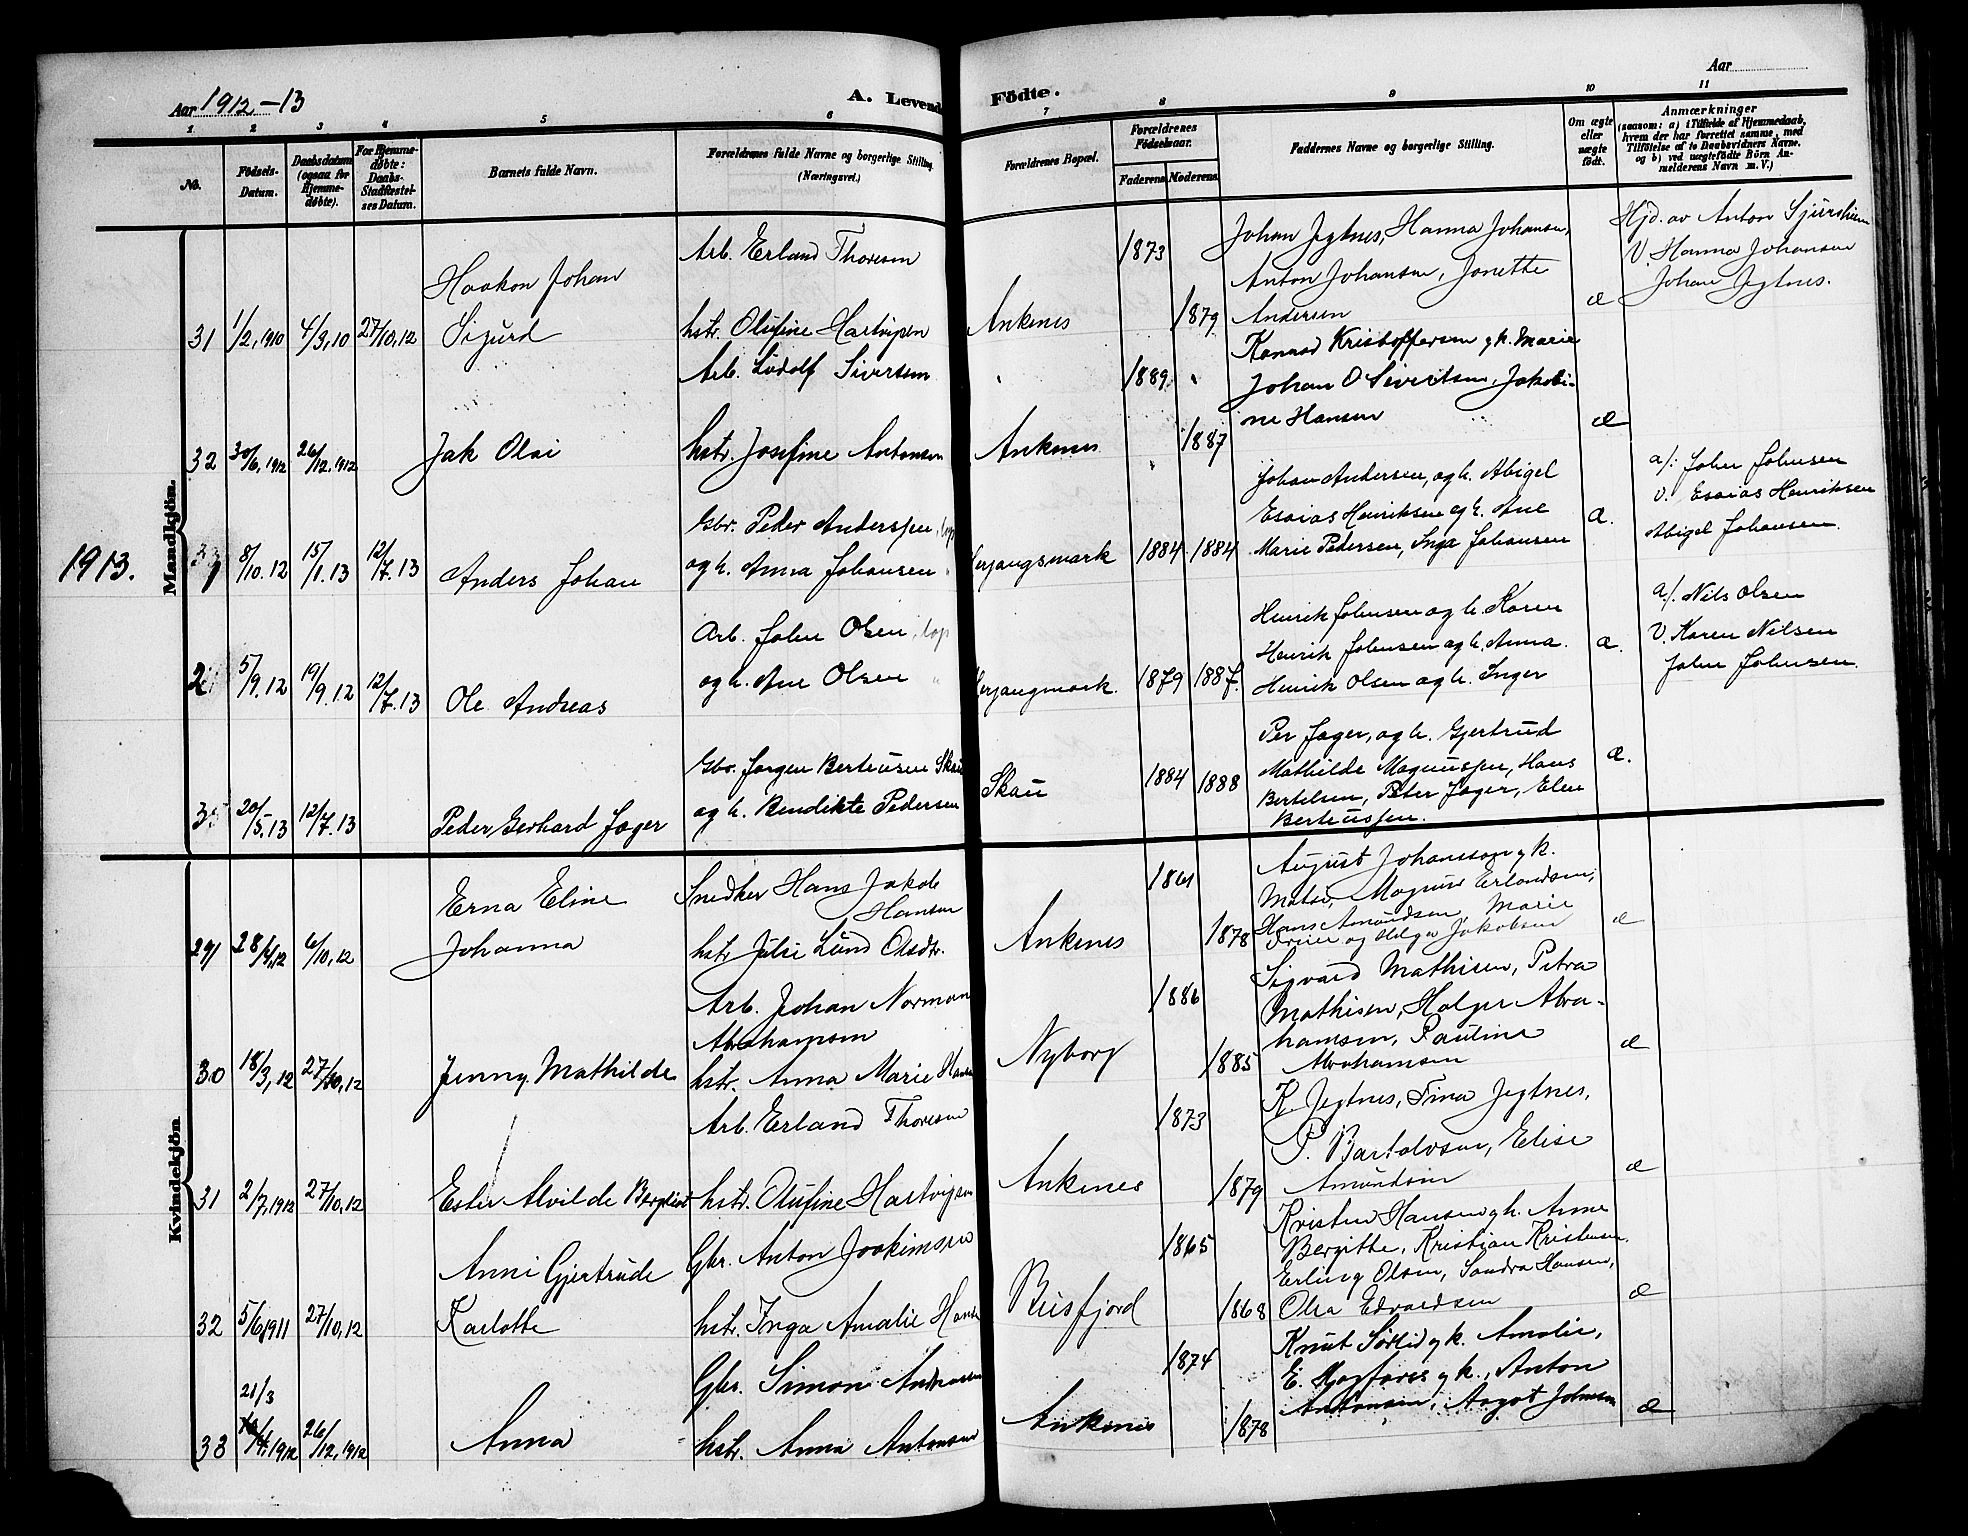 Aar 1912-13
A. Levende Födte.
Aar
1 2 3 4 5 6 7 8 9 10 11
No.
Födsels-Datum.
Daabsdatum (ogsaa for Hjemmedøbte).
For Hjemmedøbte: Daabs-Stadfæstelses Datum.
Barnets fulde Navn.
Forældrenes fulde Navne og borgerlige Stilling. (Næringsvei.)
Forældrenes Bopæl.
Forældrenes Födselsaar.
Faderens. Moderens.
Faddernes Navne og borgerlige Stilling.
Om ægte eller uægte födt.
Anmærkninger
(saasom: a) i Tilfælde af Hjemmedaab, hvem der har forrettet samme, med Tilföielse af to Daabsvidners Navne. og b) ved uægtefödte Börn Anmelderens Navn m. V.)
Mandkjön.
31 1/2, 1910 4/3, 10 27/10, 12 Haakon Johan
Sigurd
Arb. Erland Thoresen
hstr. Olufine Hartvigsen
Ankenes 1873 1879
Johan Jegtnes, Hanna Johansen,
Anton Johansen, Jonette
Andersen
æ
Hjd. av Anton Sjursheim
V. Hanna Johansen
Johan Jegtnes.
32 30/6, 1912 26/12, 1912 Jak Olai
Arb. Ludolf Sivertsen
hstr. Josefine Antonsen
Ankenes 1889 1887
Konrad Kristoffersen g k. Marie
Johan O Sivertsen, Jakobi-
ne Hansen
æ
1913.
1 8/10. 12 15/1. 13 12/7. 13 Anders Johan
Gbr. Peder Anderssen, lap
og h. Anna Johansen "
Herjangsmark 1884 1884
Johan Andersen, og h. Abigel
Esaias Henriksen og h. Ane
Marie Pedersen, Inga Johansen
æ.
a/: John Johnsen
v. Esaias Henriksen
Abigel Johansen.
2 5/9. 12 19/9. 12 12/7. 13 Ole Andreas
Arb. John Olsen, lap
og h. Ane Olsen "
Herjangmark. 1879 1887.
Henrik Johnsen og h. Karen
Henrik Johnsen og h. Anna.
Henrik Olsen og h. Inger
æ.
a/. Nils Olsen
V. Karen Nilsen
John Johnsen.
3 20/5. 13 12/7. 13 Peder Gerhard Jager
Gbr. Jørgen Berteussen Skau
og h. Bendikte Pedersen
Skau 1884 1888
Per Jager, og h. Gjertrud
Mathilde Magnussen, Hans
Bertelsen, Peter Jager, Elen
Berteussen.
æ.
Kvindekjön
29 28/4, 12 6/10, 12 Erna Eline
Johanna
Snedker Hans Jakob
Hansen
hstr. Julie Lund Olsdtr.
Ankenes 1861 1878
August Johansson g k.
Matea, Magnus Erlandsen,
Hans Amundsen, Marie
Freier og Helga Jakobsen
æ
30 18/3, 12 27/10, 12 Jenny Mathilde
Arb. Johan Norman
Abrahamsen
hstr. Anna Marie Hansen
Nyborg 1886 1885
Sigvard Mathisen, Petra
Mathisen, Holger Abra-
hamsen, Pauline
Abrahamsen
æ
31 2/7, 1912 27/10, 12 Ester Alvilde Bergliot
Arb. Erland Thoresen
hstr. Olufine Hartvigsen
Ankenes 1873 1879
K. Jegtnes, Tina Jegtnes,
P. Bartolvsen, Elise
Amundsen
æ
32 5/6 1911 27/10, 12 Anni Gjertrude
Karlotte
Gbr. Anton Joakimsen
hstr. Inga Amalie Hansen
Beisfjord 1865 1868
Kristen Hansen g k. Anne
Bergitte, Kristian Kristensen,
Erling Olsen, Sandra Hansen,
Olea Edvardsen
æ
33 21/3 1912 26/12, 1912 Anna
Gbr. Simon Andreasen
hstr. Anna Antonsen
Ankenes 1874 1878
Knut Sørlid g k. Amalie,
E. Hagfores g k., Anton
Antonsen, Aagot Johnsen
æ